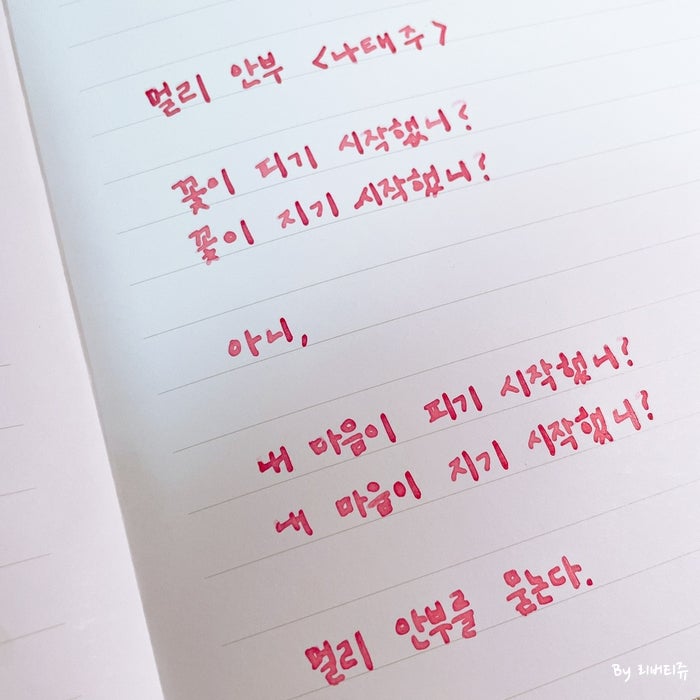 멀리 안부 <나태주>
꽃이 피기 시작했니?
꽃이 지기 시작했니?
아니,
내 마음이 피기 시작했니?
내 마음이 지기 시작했니?
멀리 안부를 묻는다.
By 리버티쥬